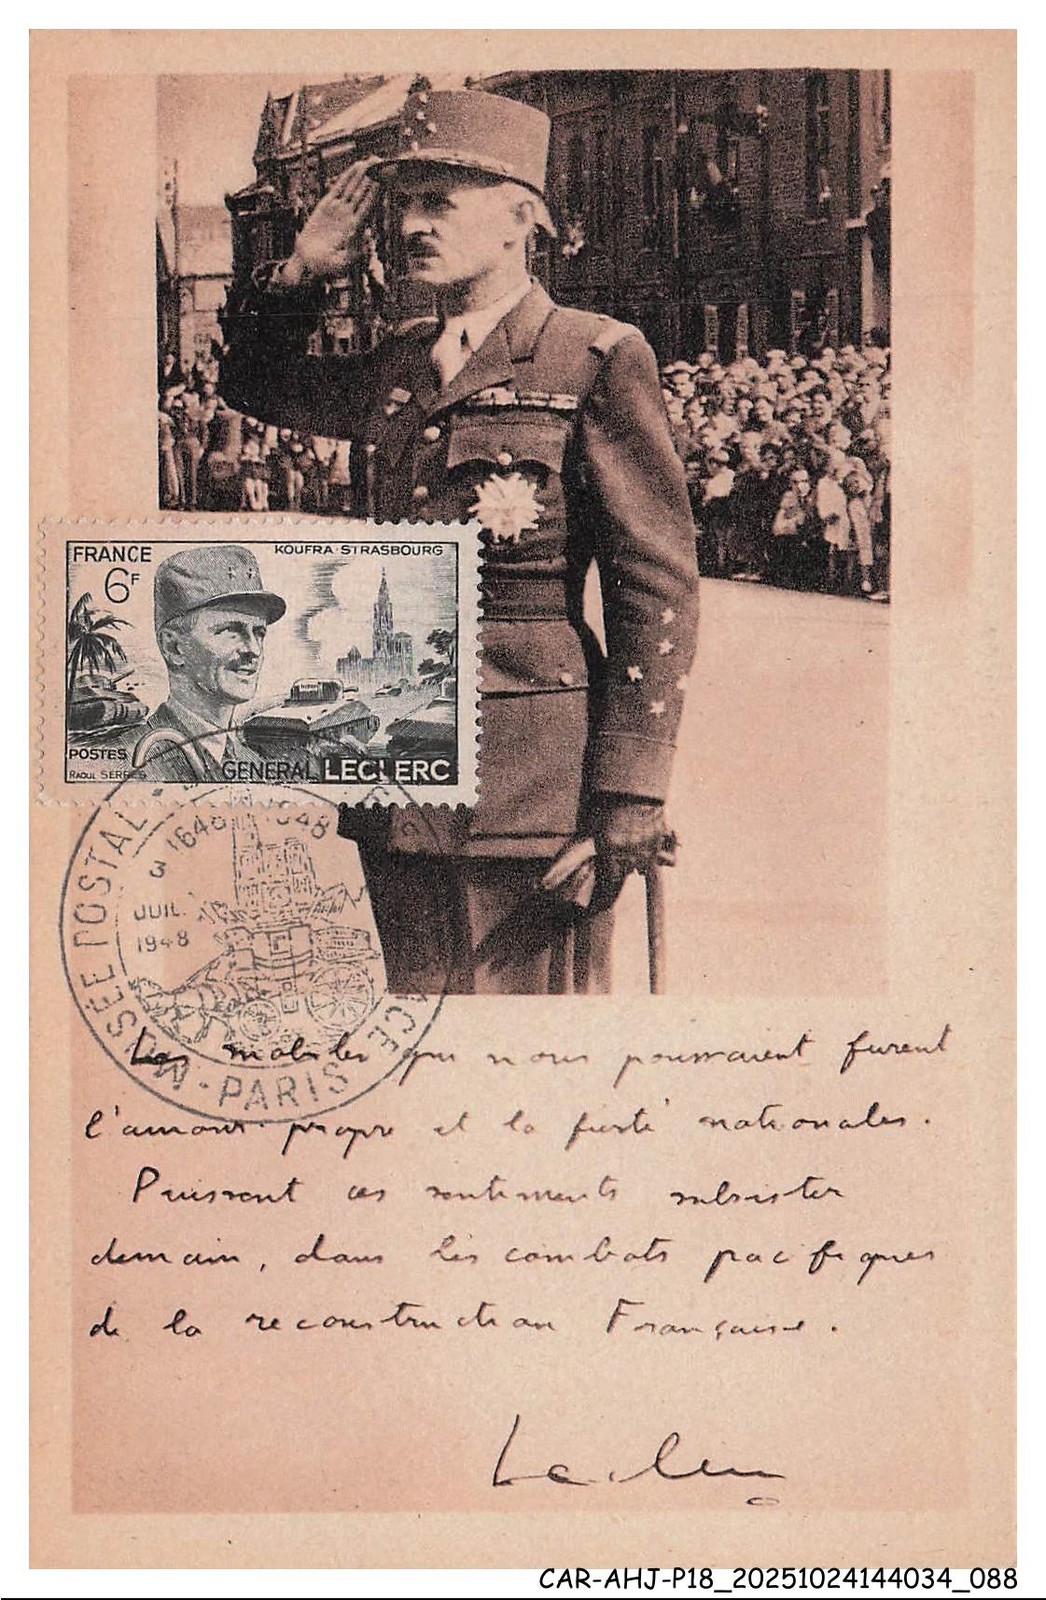 FRANCE
KOUFRA·STRASBOURG
6F
POSTES
RAOUL SERRES
GENERAL LECLERC
MUSÉE POSTAL
1648 1948
3
JUIL.
1948
· PARIS
Les mobiles qui nous poussaient furent
l'amour propre et la fierté nationales.
Puissent ces sentiments subsister
demain, dans les combats pacifiques
de la reconstruction Française.
Leclerc
CAR-AHJ-P18_20251024144034_088